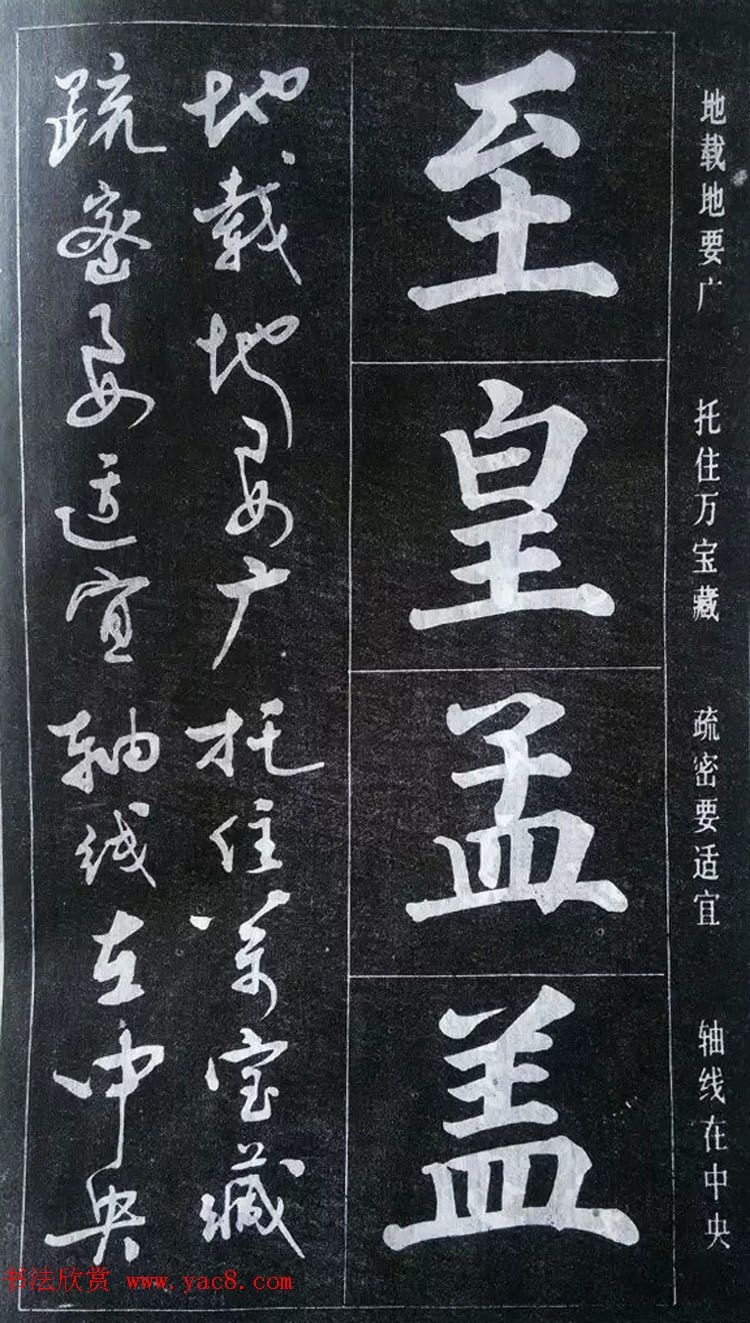 地载地要广 托住万宝藏 疏密要适宜 轴线在中央
至
皇
孟
盖
地载地要广 托住万宝藏
疏密要适宜 轴线在中央
书法欣赏 www.yac8.com